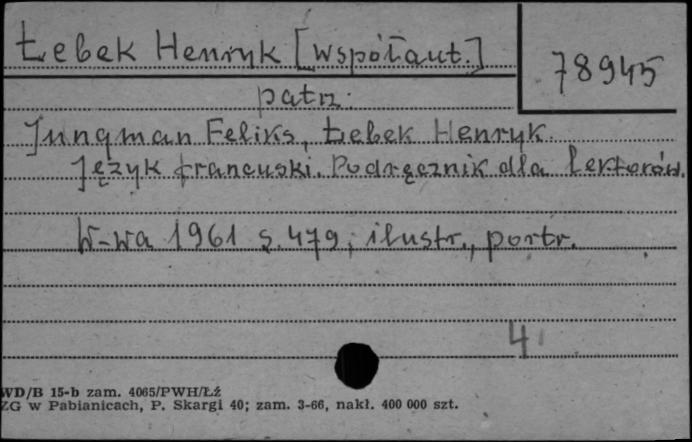 Łebek Henryk [współaut.]
78945
patrz:
Jungman Feliks, Łebek Henryk.
Język francuski. Podręcznik dla lektorów.
W-wa 1961 s. 479, ilustr., portr.
4
WD/B 15-b zam. 4065/PWH/Łź
ZG w Pabianicach, P. Skargi 40; zam. 3-66, nakł. 400 000 szt.